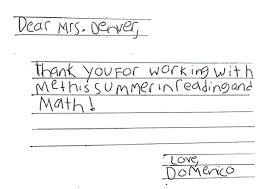 Dear Mrs. Denver,
Thank you for working with
me this summer in reading and
Math!
Love,
Domenico